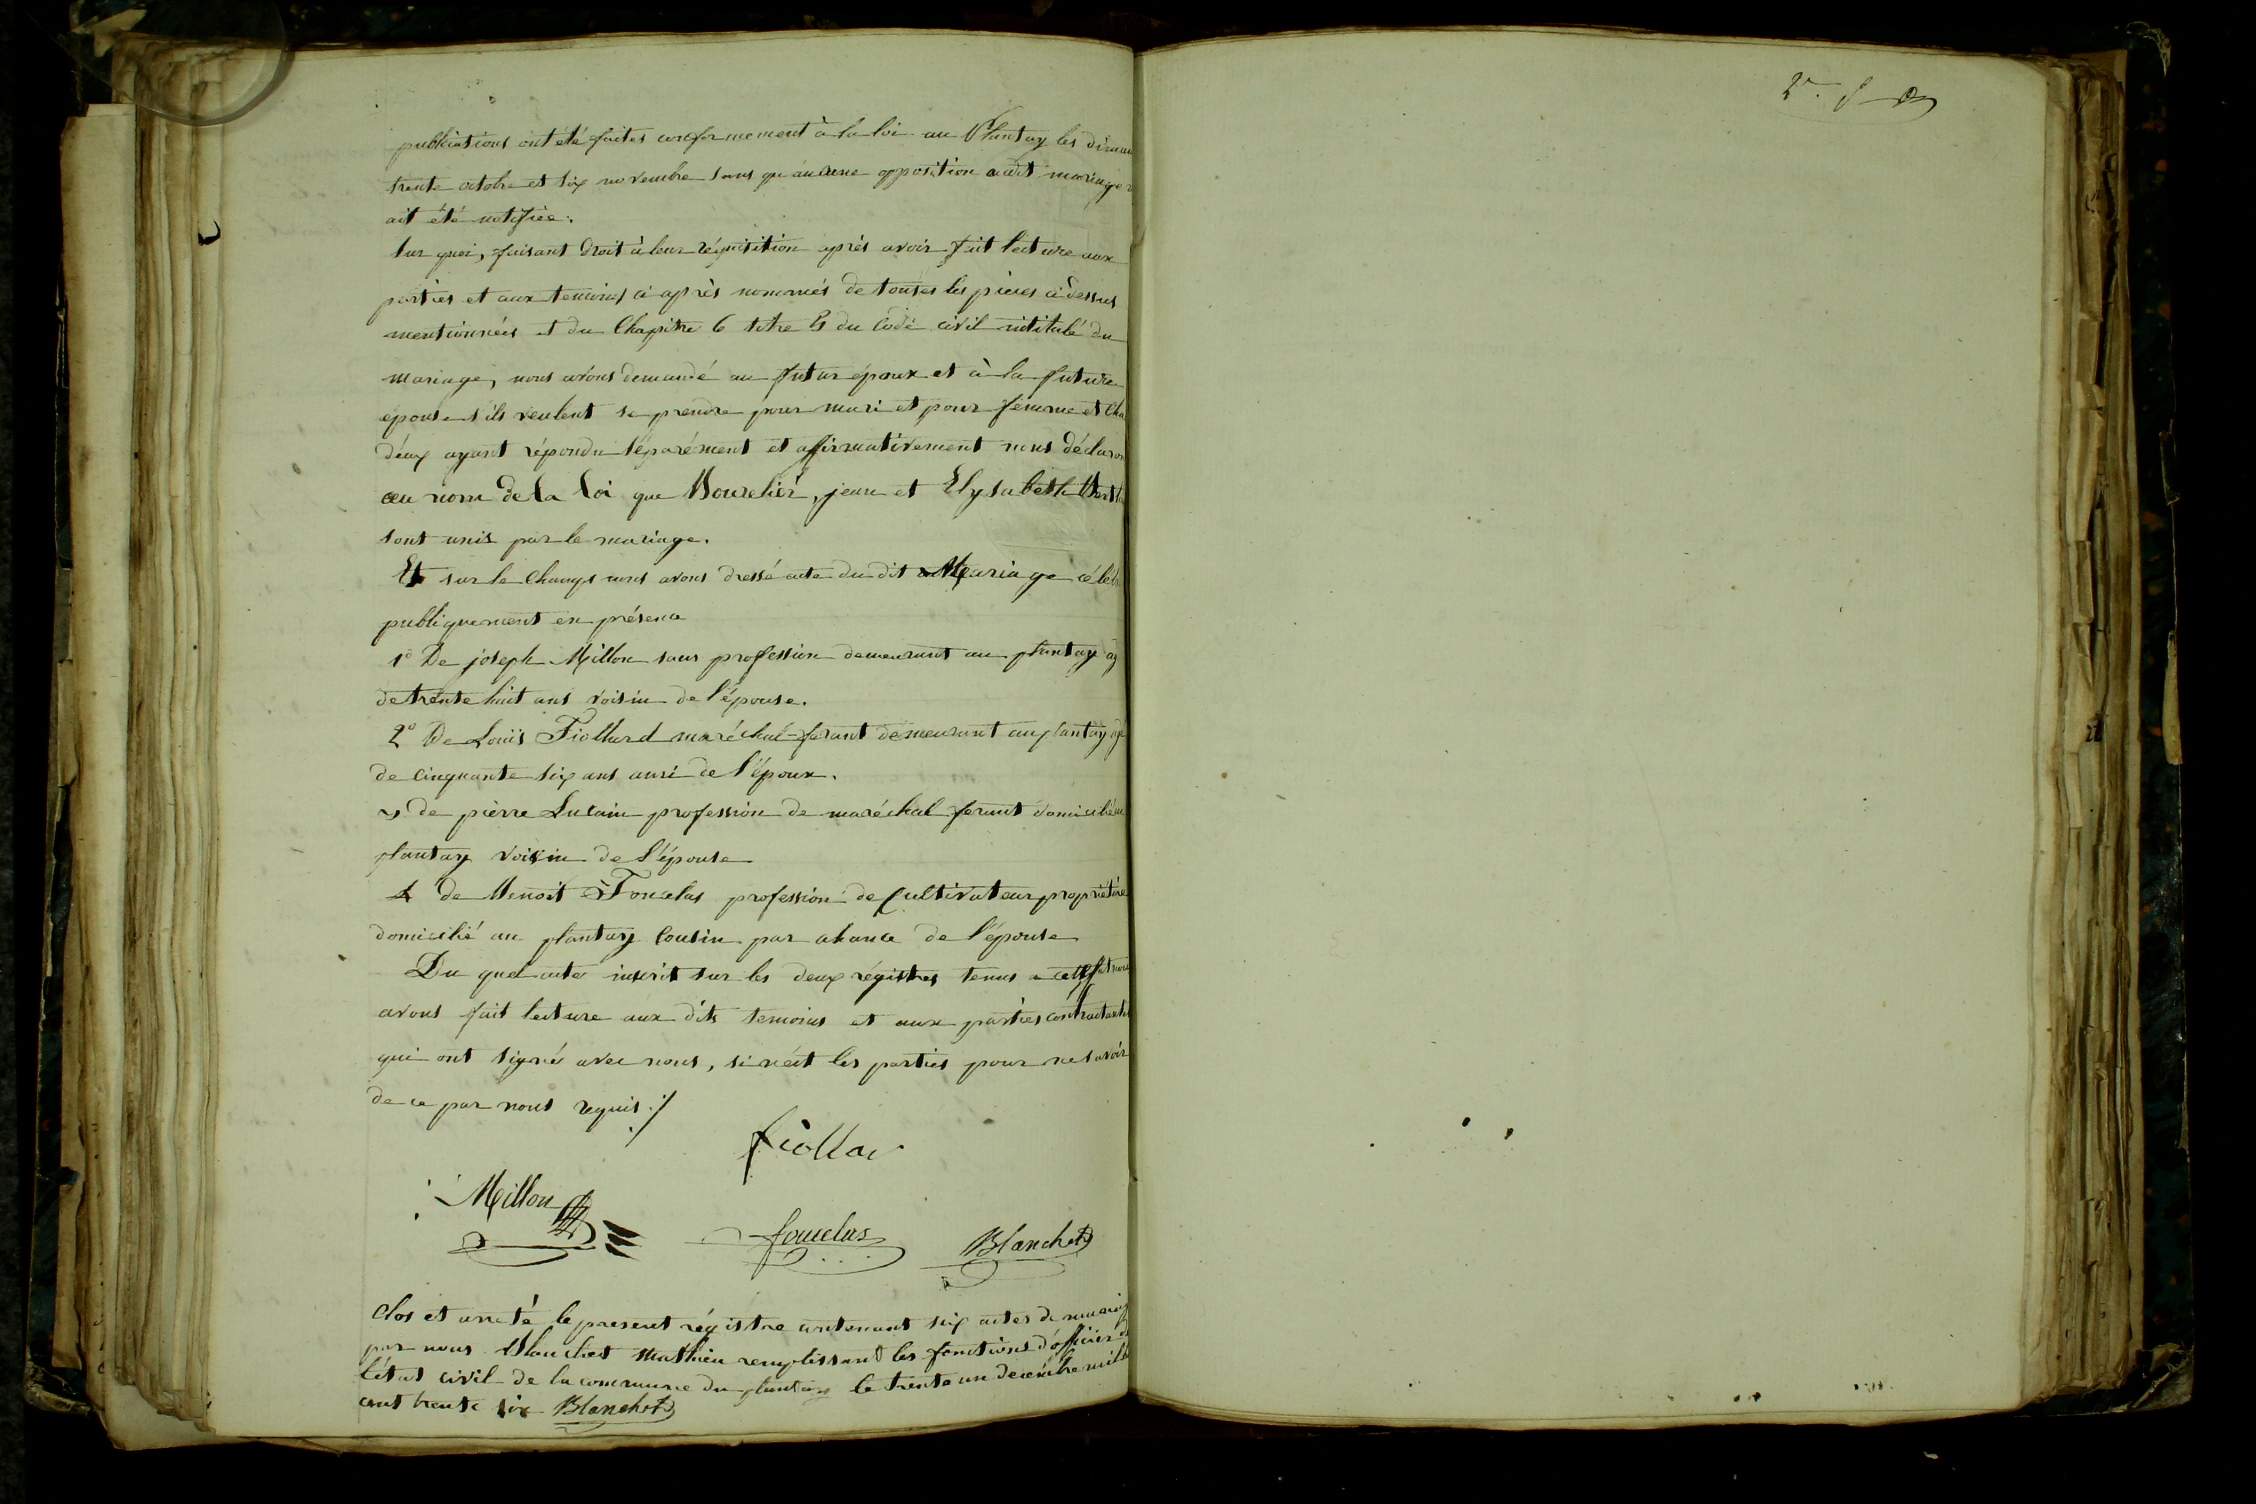 publications ont été faites conformement à la loi au Plantay les diman
trente octobre et six novembre sans qu'aucune opposition audit mariage
ait été notifiée.
Sur quoi, faisant droit à leur réquisition après avoir fait lecture aux
parties et aux temoins ci après nommés de toutes les pièces ci dessus
mentionnées et du Chapitre 6 titre 5 du Code civil intitulé du
mariage, nous avons demandé au futur époux et à la future
épouse s'ils veulent se prendre pour mari et pour femme et cha
d'eux ayant répondu séparément et affirmativement nous déclaron
au nom de la loi que Bourelier, jean et Elysabeth
sont unis par le mariage.
Et sur le champs nous avons dressé acte du dit Mariage célé
publiquement en présence
1° De joseph Millon sans profession demeurant au plantay ag
de trente huit ans voisin de l'épouse.
2° De Louis Fiollard maréchal-ferant demeurant au plantay agé
de cinquante six ans ami de l'époux.
3 de pierre Lucain profession de maréchal ferant domicilié au
plantay voisin de l'épouse
4 de Benoit Fouclas profession de Cultivateur propriétire
domicilié au plantay Cousin par aliance de l'épouse
Du quel acte inscrit sur les deux régistres tenus a cet effet nous
avons fait lecture aux dits temoins et aux parties contractantes
qui ont signé avec nous, si n'est les parties pour ne savoir
de ce par nous requis ./
fiollar
Millon
fouclas
Blanchot
Clos et arreté le present régistre contenant six actes de mariag
par nous Blanchot Mathieu remplissant les fonctions d'officier d
l'état civil de la commune du plantay le trente un decembre mil
cent trente six Blanchot